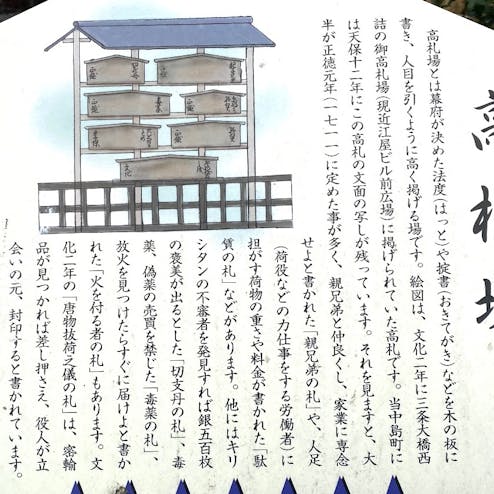 高札場
高札場とは幕府が決めた法度(はっと)や掟書(おきてがき)などを木の板に
書き、人目を引くように高く掲げる場です。絵図は、文化二年に三条大橋西
詰の御高札場(現近江屋ビル前広場)に掲げられていた高札です。当中島町に
は天保十二年にこの高札の文面の写しが残っています。それを見ますと、大
半が正徳元年(一七一一)に定めた事が多く、親兄弟と仲良くし、家業に専念
せよと書かれた「親兄弟の札」や、人足
(荷役などの力仕事をする労働者)に
担がす荷物の重さや料金が書かれた「駄
賃の札」などがあります。他にはキリ
シタンの不審者を発見すれば銀五百枚
の褒美が出るとした「切支丹の札」、毒
薬、偽薬の売買を禁じた「毒薬の札」、
放火を見つけたらすぐに届けよと書か
れた「火を付る者の札」もあります。文
化二年の「唐物抜荷之儀の札」は、密輸
品が見つかれば差し押さえ、役人が立
会いの元、封印すると書かれています。